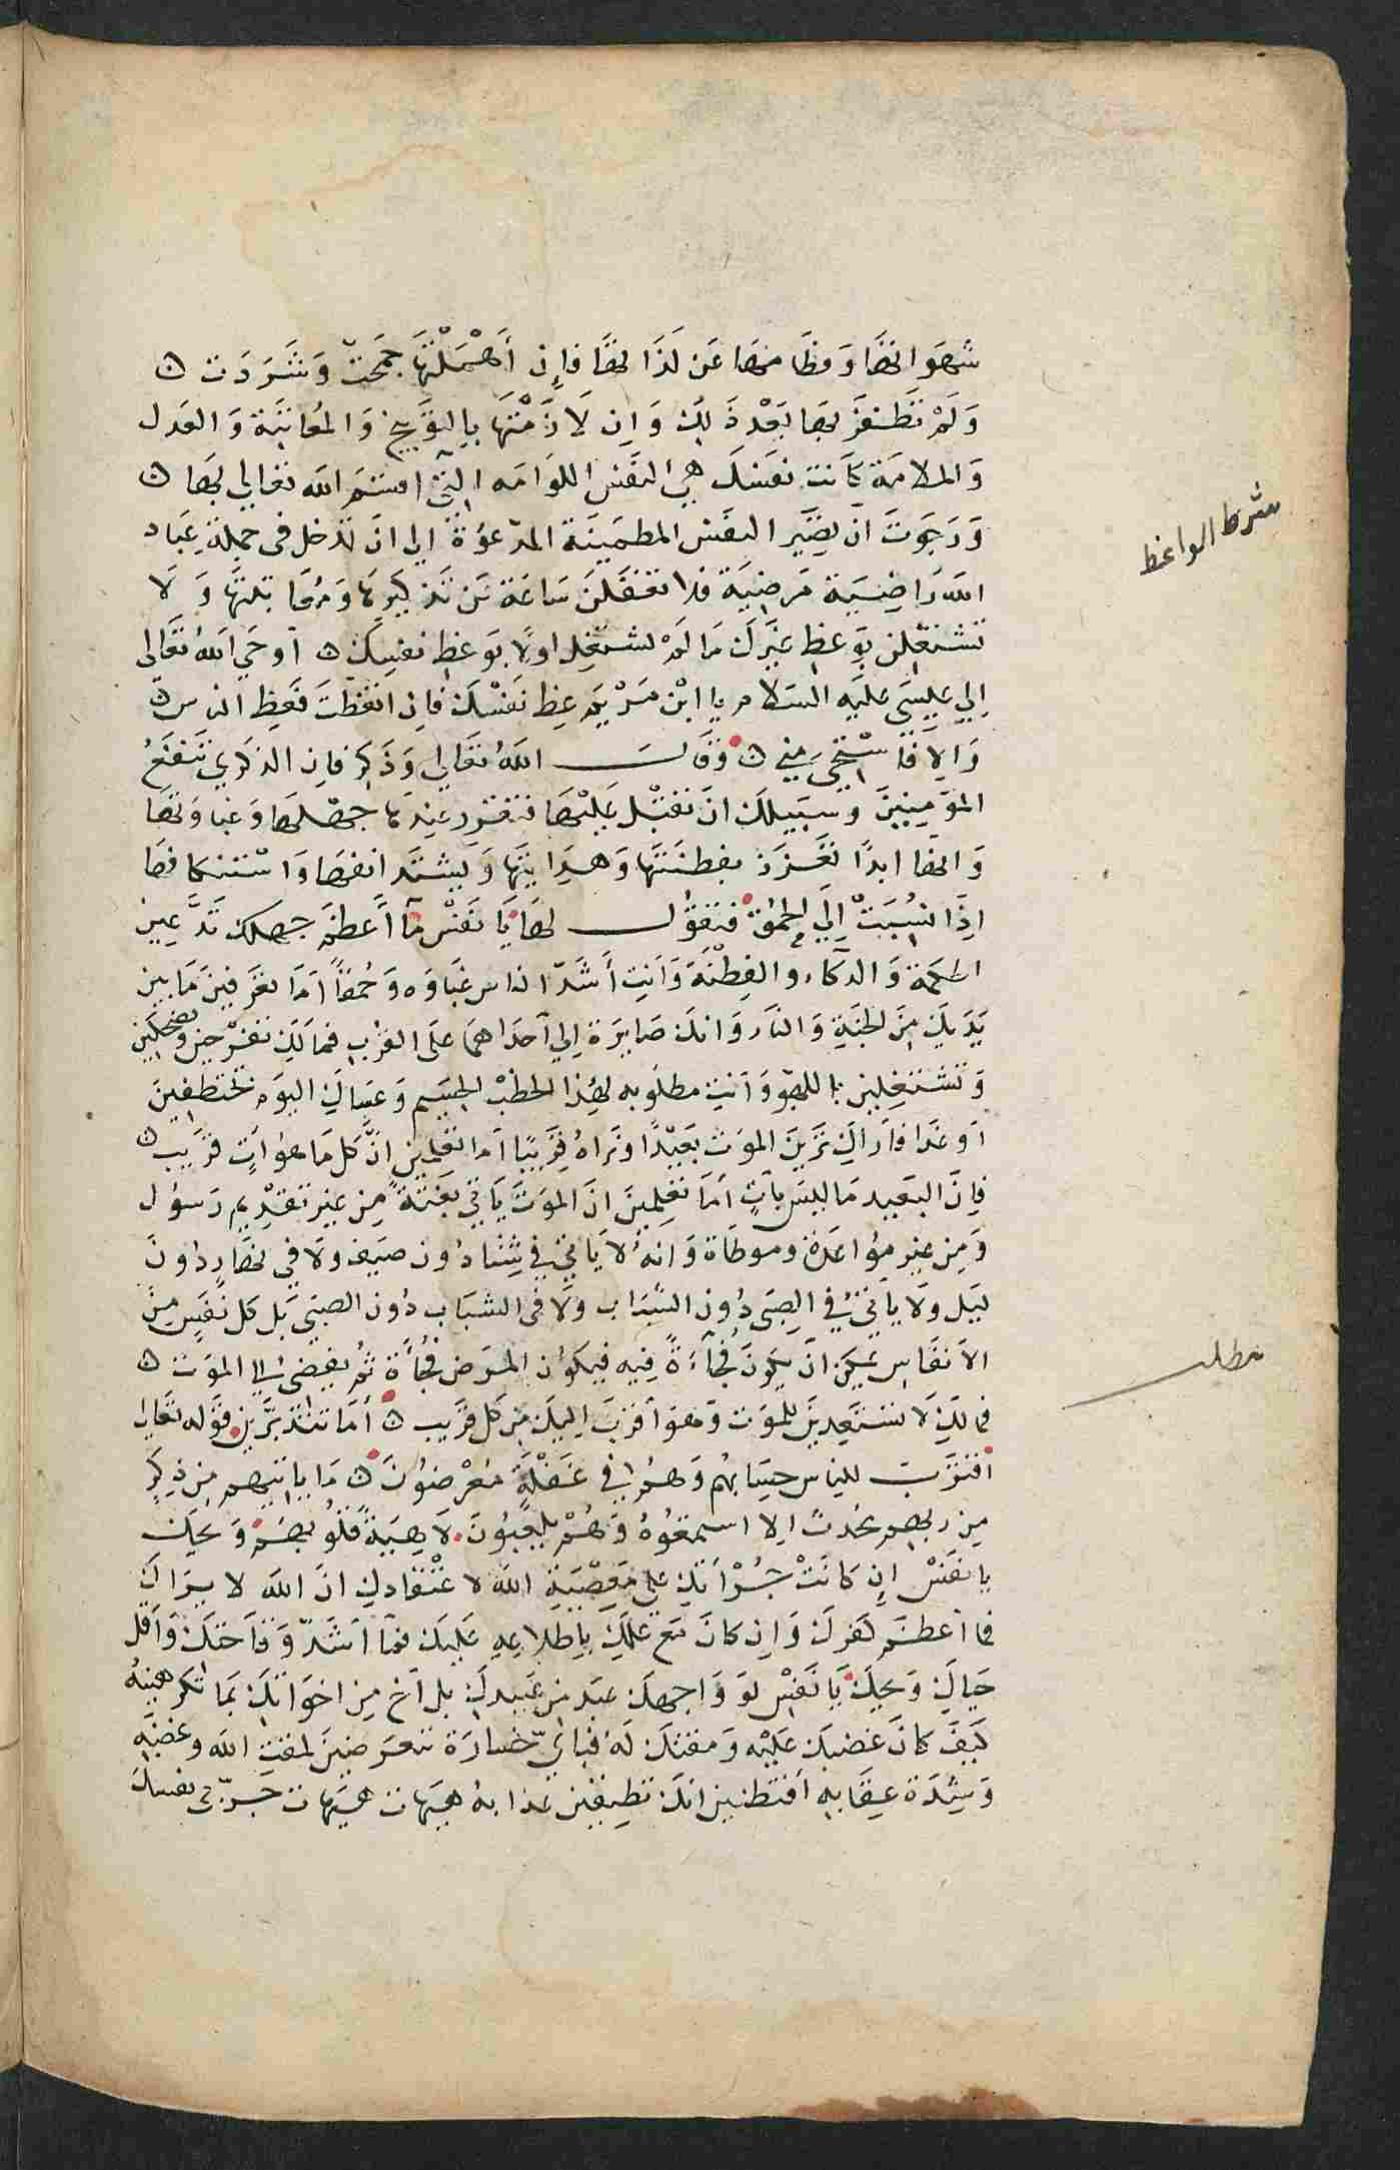 شهواتها وفطامها عن لذاتها فان أهملتها جمحت وشردت ن
ولم تظفر بها بعد ذلك وان لازمتها بالتوبيخ والمعاتبة والعدل
والملامة كانت نفسك هي النفس اللوامه التي اقسم الله تعالي بها ن
ورجوت ان تصير النفس المطمينة المدعوة الي ان تدخل في جملة عباد
الله راضية مرضية فلا تغفلن ساعة عن تذكيرها ومعاتبتها ولا
تشتغلن بوعظ غيرك ما لم تشتغل اولا بوعظ نفسك ن أوحي الله تعالى
الي عيسى عليه السلام يا ابن مريم عظ نفسك فان اتعظت فعظ الناس ن
والا فاستحي مني ن وقال الله تعالي وذكر فان الذكري تنفع
المومنين وسبيلك ان تقبل عليها فتقرر عندها جهلها وغباوتها
وانها ابدا تعزز بفطنتها وهدايتها ويشتد انفها واستنكافها
اذا نسبت الي الحمق فتقول لها يا نفس ما أعظم جهلك تدعين
الحكمة والذكاء والفطنة وانت أشد الناس غباوه وحمقا اما تعرفين ما بين
يديك من الجنة والنار وانك صايرة الي احداهما على القرب فمالك تفرحين وتضحكين
وتشتغلين باللهو وانت مطلوبه لهذا الخطب الجسيم وعساك اليوم تختطفين
أو غدا فاراك ترين الموت بعيدا ونراه قريبا اما تعلمين ان كل ما هو آت قريب ن
فان البعيد ما ليس بآت أما تعلمين ان الموت ياتي بغتة من غير تقديم رسول
ومن غير مواعدة وموطاة وانه لا ياتي في شتا دون صيف ولا في نهار دون
ليل ولا ياتي في الصبي دون الشباب ولا في الشباب دون الصبي بل كل نفس من
الانفاس يمكن ان يكون فجآءة فيه فيكون المرض فجأة ثم يفضي الي الموت ن
فمالك لا تستعدين للموت وهو أقرب اليك من كل قريب ن أما تتدبرين قوله تعالى
اقترب للناس حسابهم وهم في غفلة معرضون ن ما ياتيهم من ذكر
من ربهم محدث الا استمعوه وهم يلعبون لاهية قلوبهم ويحك
يا نفس ان كانت جرأتك على معصية الله لاعتقادك ان الله لا يراك
فما أعظم كفرك وان كان مع علمك باطلاعه عليك فما اشد وقاحتك وأقل
حياك ويحك يا نفس لو واجهك عبد من عبيدك بل أخ من اخوانك بما تكرهينه
كيف كان غضبك عليه ومقتك له فباي جسارة تتعرضين لمقت الله وغضبه
وشدة عقابه أفتظنين انك تطيقين عذابه هيهات هيهات جربي نفسك
شرط الواعظ
مطلب